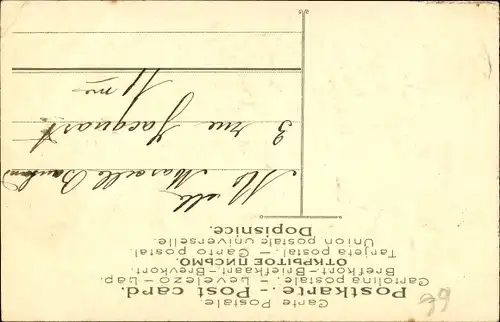 Carte Postale.
Postkarte. - Post card.
Cartolina postale. - Levelező-Lap.
Brefkort-Briefkaart-Brevkort.
ОТКРЫТОЕ ПИСЬМО.
Tarjeta postal. - Carto postal.
Union postale universelle.
Dopisnice.
Mlle Marcelle
3 rue Jacquart
11me
99